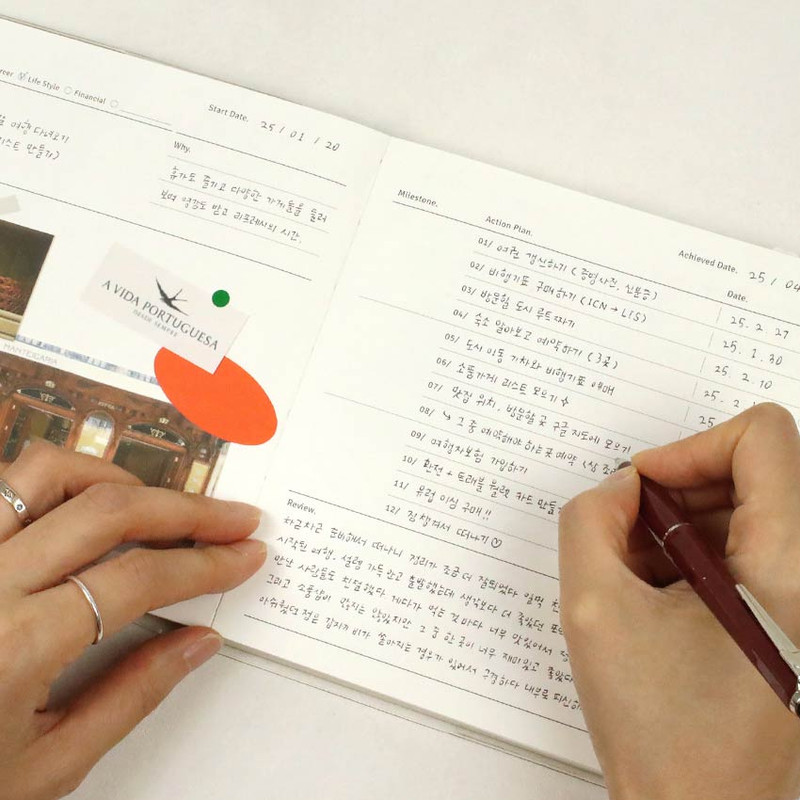 Life Style
Financial
Start Date.
25 / 01 / 20
여행 다녀오기
리스트 만들기)
Why.
휴가도 즐기고 다양한 가게들을 둘러
보며 영감도 받고 리프레시의 시간.
A VIDA PORTUGUESA
DESDE SEMPRE
MANTEIGARIA
Milestone.
Action Plan.
Achieved Date.
25 / 04
Date.
01/ 여권 갱신하기 (증명사진, 신분증)
25. 2. 27
02/ 비행기표 구매하기 (ICN → LIS)
25. 1. 30
03/ 방문할 도시 루트짜기
25. 2. 10
04/ 숙소 알아보고 예약하기 (3곳)
25. 2
05/ 도시 이동 기차와 비행기표 예매
25
06/ 소품가게 리스트 모으기
07/ 맛집 위치, 방문할 곳 구글 지도에 모으기
08/ ↳ 그 중 예약해야 하는 곳 예약
09/ 여행자보험 가입하기
10/ 환전 + 트래블 월렛 카드 만들
11/ 유럽 이심 구매!!
12/ 짐 챙겨서 떠나기♡
Review.
차근차근 준비해서 떠나니 정리가 조금 더 잘되었다 일찍
시작된 여행. 설렘 가득안고 출발했는데 생각보다 더 좋았던
만난 사람들도 친절했다 게다가 먹는 것마다 너무 맛있어서
그리고 소품샵이 많지는 않았지만 그 중 한곳이 너무 재미있고 좋았다
아쉬웠던 점은 갑자기 비가 쏟아지는 경우가 있어서 구경하다 내부로 피신하